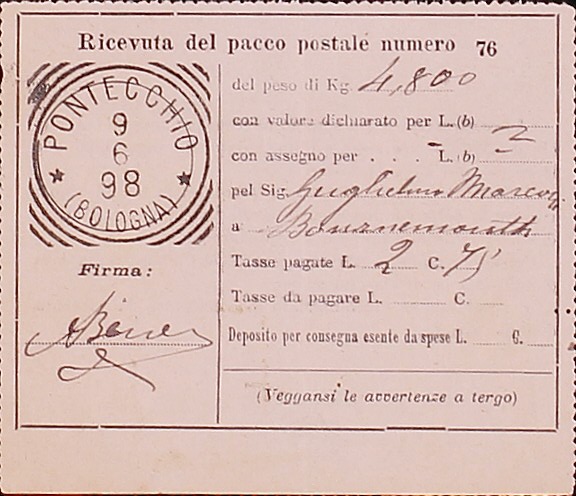 Ricevuta del pacco postale numero 76
PONTECCHIO
9
6
98
(BOLOGNA)
del peso di Kg. 4,800
con valore dichiarato per L. (b)
con assegno per . . . L. (b)
pel Sig. Guglielmo Marconi
a Bournemouth
Tasse pagate L. 2 C. 75
Tasse da pagare L. C.
Deposito per consegna esente da spese L. C.
Firma:
(Veggansi le avvertenze a tergo)